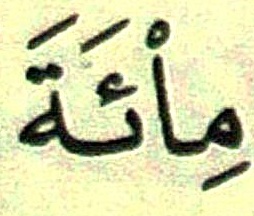 مِاْئَةَ